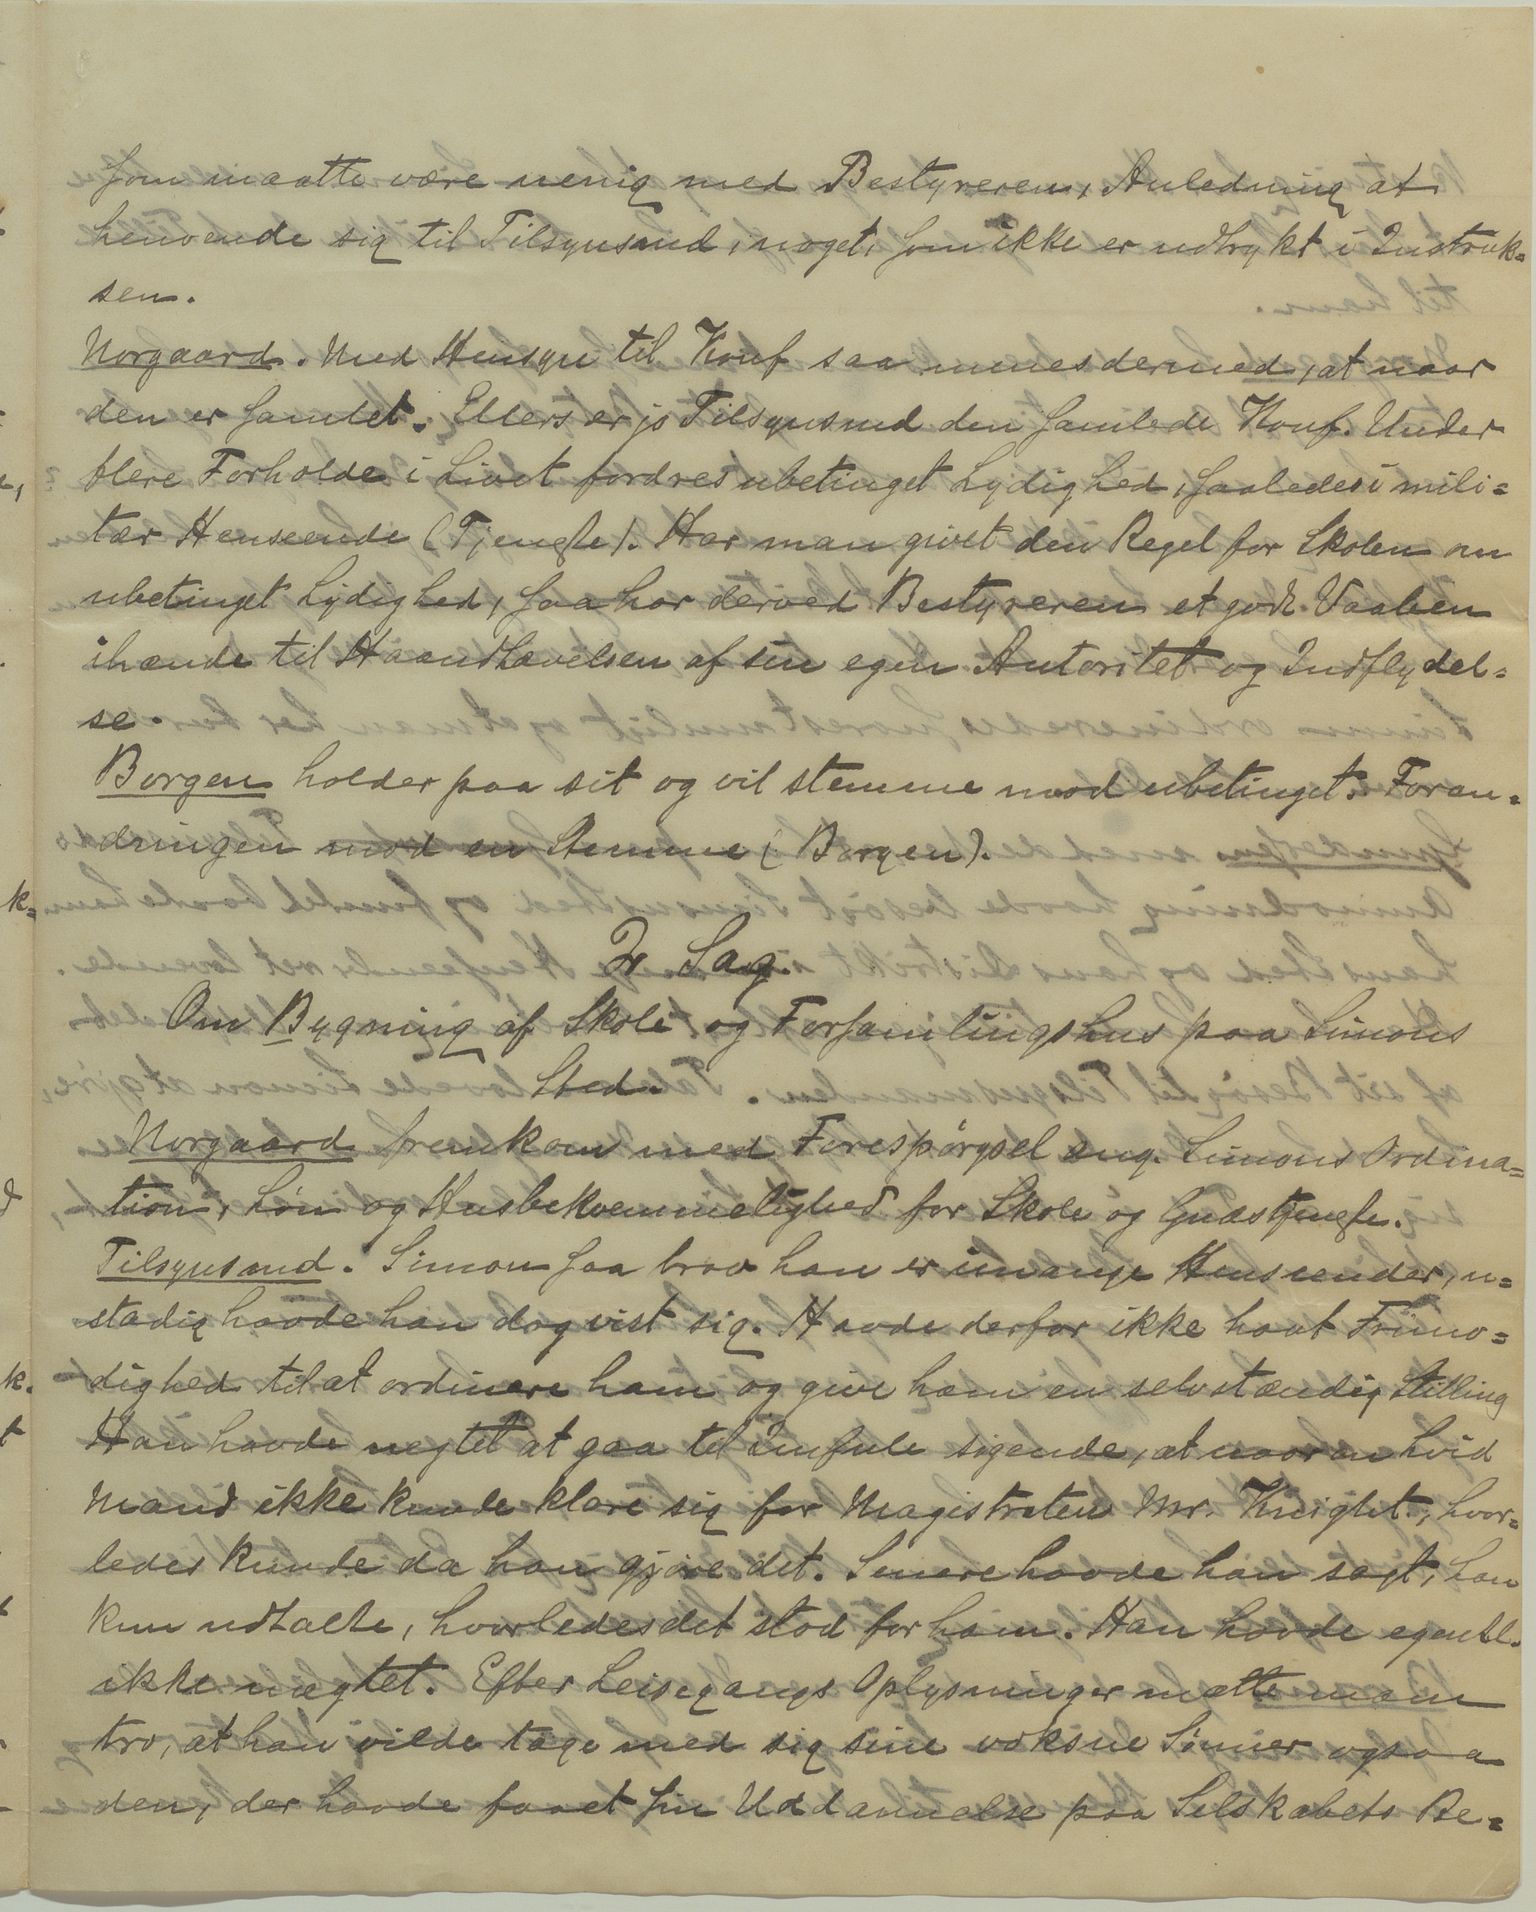 som maatte være uenig med Bestyreren, Anledning at
henvende sig til Tilsynsmd, i noget, som ikke er udtrykt i Instruk=
sen.
Norgaard. Med Hensyn til Konf saa menes dermed, at naar
den er samlet. Ellers er jo Tilsynsmd den samlede Konf. Under
flere Forholde i Livet fordres ubetinget Lydighed, saaledes i mili=
tær Henseende (Tjeneste). Har man givet den Regel for Skolen om
ubetinget Lydighed, saa har derved Bestyreren et godt Vaaben
ihænde til Haandhævelsen af sin egen Autoritet og Indflydel=
se.
Borgen holder paa sit og vil stemme mod ubetinget. Foran=
dringen mod en Stemme (Borgen).
2. Sag.
Om Bygning af Skole og Forsamlingshus paa Simons
Sted.
Norgaard fremkom med Forespørgsel ang. Simons Ordina=
tion, Løn og Husbekvemmelighed for Skole og Gudstjeneste.
Tilsynsmd. Simon saa brav han er i mange Henseender, u=
stadig havde han dog vist sig. Havde derfor ikke havt Frimo=
dighed til at ordinere ham og give ham en selvstændig Stilling
Han havde negtet at gaa til Imfule sigende, at naar en hvid
Mand ikke kunde klare sig for Magistraten Mr. Knight, hvor=
ledes kunde da han gjøre det. Senere havde han sagt, han
kun udtalte, hvorledes det stod for ham. Han havde egentl.
ikke nægtet. Efter Leisegangs Oplysninger maatte man
tro, at han vilde tage med sig sine voksne Sønner ogsaa
den, der havde faaet sin Uddannelse paa Selskabets Be=